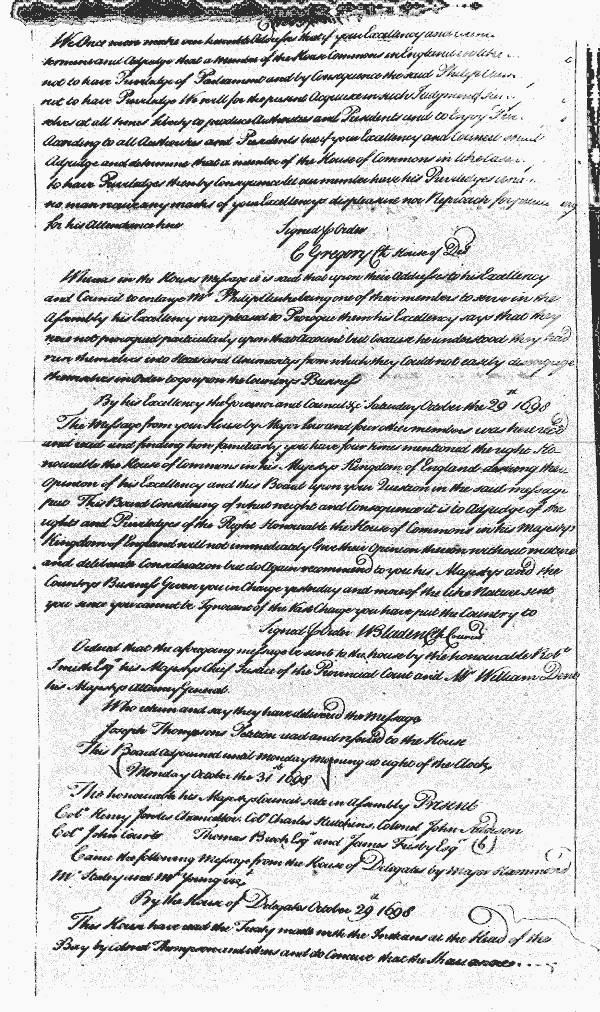 We Once more make our humble Address that if your Excellency and
termine and Adjudge that a member of the House Commons in England
not to have Priviledge of Parliament and by Consequence the said Philip
not to have Priviledge We will for the present Acquiesce in such Judgment
selves at all times liberty to produce Authorities and Presidents and to Enjoy
According to all Authorities and Presidents but if your Excellency and Councill
Adjudge and determine that a member of the House of Commons in
to have Priviledges then by Consequence let our member have his Priviledges
no man receive any marks of your Excellencys displeasure nor Reproach for
for his Attendance here
Signed p Order
C Gregory Clk House of Del
Whereas in the Houses Message it is said that upon their Address to his Excellency
and Council to enlarge Mr Philip being one of their members to serve in the
Assembly his Excellency was pleased to Prorogue them his Excellency says that they
were not prorogued particularly upon that Account but because he understood they had
run themselves into Heats and Animosity from which they Could not easily disengage
themselves in Order to go upon the Countrys Business
By his Excellency the Governor and Council &c Saturday October the 29th 1698
The Message from your House by Major low and four other members was here recd
and read and finding how familiarly you have four times mentioned the right Ho
nourable the House of Commons in his Majestys Kingdom of England desiring the
Opinion of his Excellency and this Board upon your Question in the said message
put This Board Considering of what weight and Consequence it is to Adjudge of the
rights and Priviledges of the Right Honourable the House of Commons in his Majestys
Kingdom of England will not immediately Give their Opinion therein without mature
and deliberate Consideration but do Again recommend to you his Majestys and the
Countrys Business Given you in Charge yesterday and more of the like Nature sent
you since you cannot be Ignorant of the Vast Charge you have put the Country to
Signed p Order W Bladen Clk Council
Ordered that the aforegoing message be sent to the house by the honourable Robt
Smith Esqr his Majestys Chief Justice of the Provincial Court and Mr William Dent
his Majestys Attorney General
Who return and say they have delivered the Message
Joseph Thompsons Petition read and referred to the House
This Board Adjourned until monday morning at eight of the Clock
Monday October the 31st 1698
The honourable his Majestys Council sate in Assembly Present
Colo Henry Jowles Chancellor, Colo Charles Hutchins, Colonel John Addison
Colo John Courts Thomas Brooke Esqr and James Frisby Esqr (6)
Came the following Message from the House of Delegates by Major Hammond
Mr and Mr Young viz
By the House of Delegates October 29th 1698
This House have read the Treaty made with the Indians at the Head of the
Bay by Colonel Thompson and others and do Conceive that the